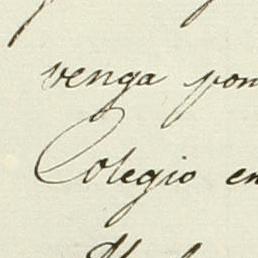 venga pon
Colegio en